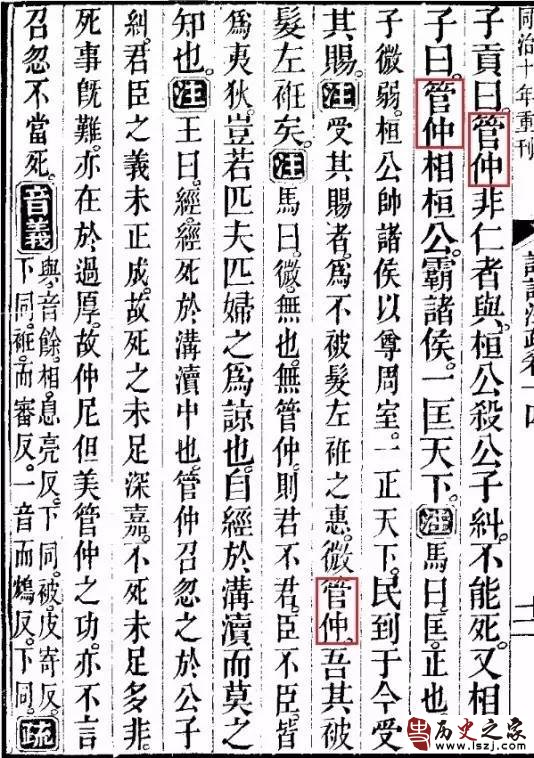 同治十年重刊
子貢曰。管仲非仁者與。桓公殺公子糾。不能死。又相
子曰。管仲相桓公。霸諸侯。一匡天下。注馬曰。匡。正也
子微弱。桓公帥諸侯以尊周室。一正天下。民到于今受
其賜。注受其賜者。爲不被髮左衽之惠。微管仲。吾其被
髮左衽矣。注馬曰。微。無也。無管仲。則君不君。臣不臣。皆
爲夷狄。豈若匹夫匹婦之爲諒也。自經於溝瀆而莫之
知也。注王曰。經。經死於溝瀆中也。管仲召忽之於公子
糾。君臣之義未正成。故死之未足深嘉。不死未足多非。
死事旣難。亦在於過厚。故仲尼但美管仲之功。亦不言
召忽不當死。音義
與音餘。相。息亮反。下同。被。皮寄反。
下同。衽。而審反。一音而鴆反。下同。疏
历史之家
www.lszj.com